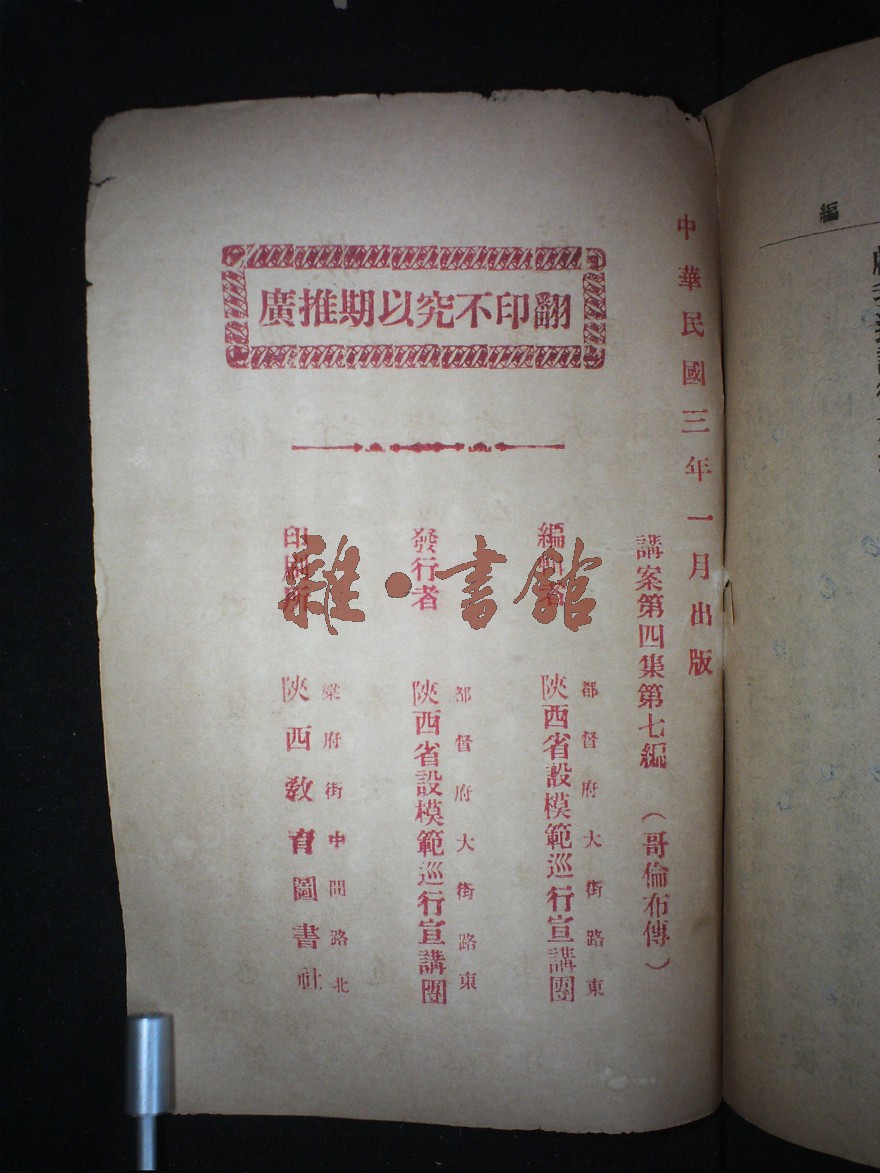 中華民國三年一月出版
翻印不究以期推廣
講案第四集第七編 （哥倫布傳）
編輯者
都督府大街路東
陝西省設模範巡行宣講團
發行者
都督府大街路東
陝西省設模範巡行宣講團
印刷所
梁府街中間路北
陝西教育圖書社
雜·書館
編